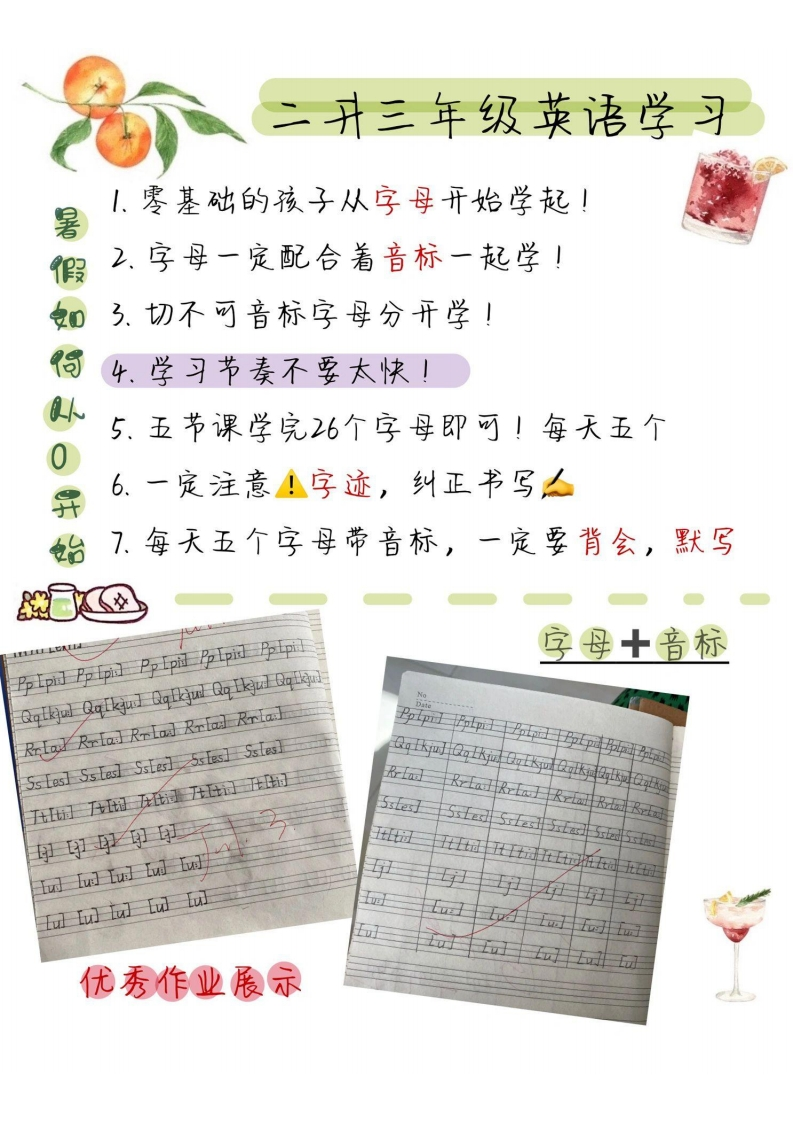 二升三年级英语学习
暑假如何从0开始
1. 零基础的孩子从字母开始学起！
2. 字母一定配合着音标一起学！
3. 切不可音标字母分开学！
4. 学习节奏不要太快！
5. 五节课学完26个字母即可！每天五个
6. 一定注意⚠️字迹，纠正书写✍️
7. 每天五个字母带音标，一定要背会，默写
字母➕音标
Pp [pi:] Pp [pi:] Pp [pi:] Pp [pi:] Pp [pi:]
Qq [kju:] Qq [kju:] Qq [kju:] Qq [kju:] Qq [kju:]
Rr [a:] Rr [a:] Rr [a:] Rr [a:] Rr [a:]
Ss [es] Ss [es] Ss [es] Ss [es] Ss [es]
Tt [ti:] Tt [ti:] Tt [ti:] Tt [ti:] Tt [ti:]
[u:] [u:] [u:] [u:] [u:]
[u] [u] [u] [u] [u]
No
Date
Pp [pi:] Pp [pi:] Pp [pi:] Pp [pi:] Pp [pi:] Pp [pi:]
Qq [kju:] Qq [kju:] Qq [kju:] Qq [kju:] Qq [kju:] Qq [kju:]
Rr [a:] Rr [a:] Rr [a:] Rr [a:] Rr [a:] Rr [a:]
Ss [es] Ss [es] Ss [es] Ss [es] Ss [es] Ss [es]
Tt [ti:] Tt [ti:] Tt [ti:] Tt [ti:] Tt [ti:] Tt [ti:]
[j] [j] [j] [j] [j] [j]
[u:] [u:] [u:] [u:] [u:] [u:]
[u] [u] [u] [u] [u] [u]
优秀作业展示